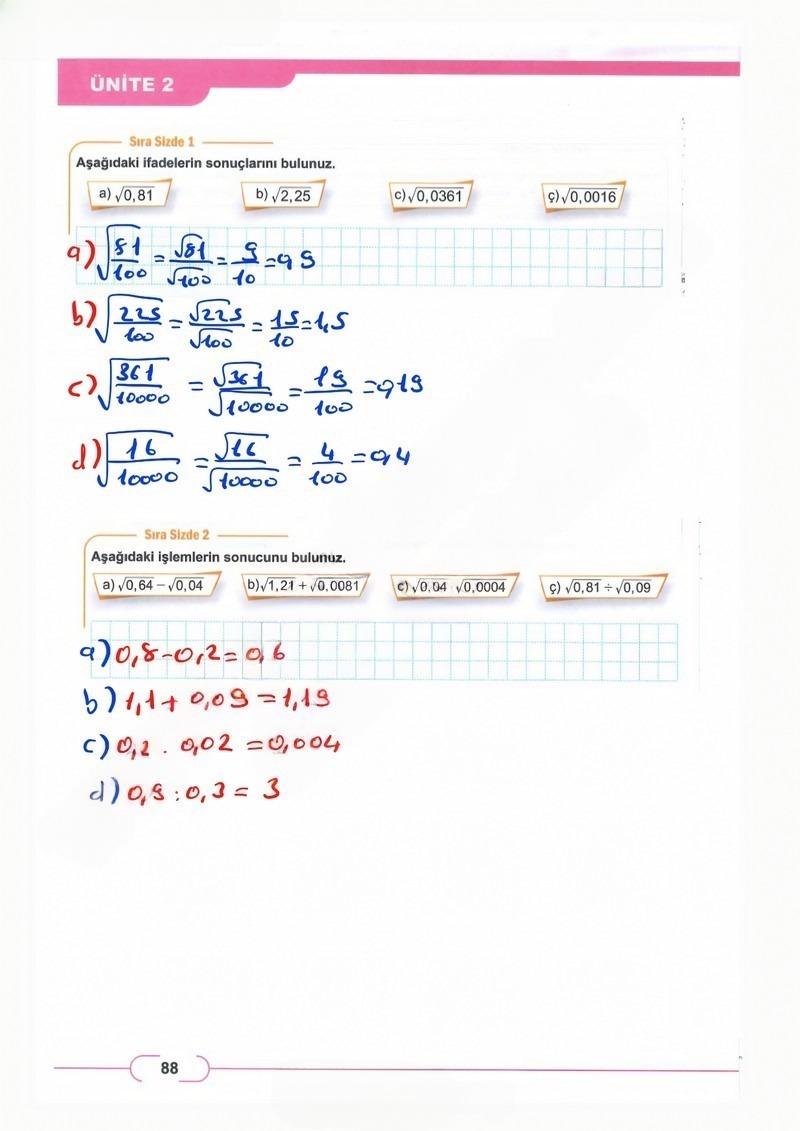 ÜNİTE 2
Sıra Sizde 1
Aşağıdaki ifadelerin sonuçlarını bulunuz.
a) √0,81 b) √2,25 c) √0,0361 ç) √0,0016
a) √(81/100) = √81/√100 = 9/10 = 0,9
b) √(225/100) = √225/√100 = 15/10 = 1,5
c) √(361/10000) = √361/√10000 = 19/100 = 0,19
d) √(16/10000) = √16/√10000 = 4/100 = 0,4
Sıra Sizde 2
Aşağıdaki işlemlerin sonucunu bulunuz.
a) √0,64 − √0,04 b) √1,21 + √0,0081 c) √0,04 √0,0004 ç) √0,81 ÷ √0,09
a) 0,8 - 0,2 = 0,6
b) 1,1 + 0,09 = 1,19
c) 0,2 . 0,02 = 0,004
d) 0,9 : 0,3 = 3
88